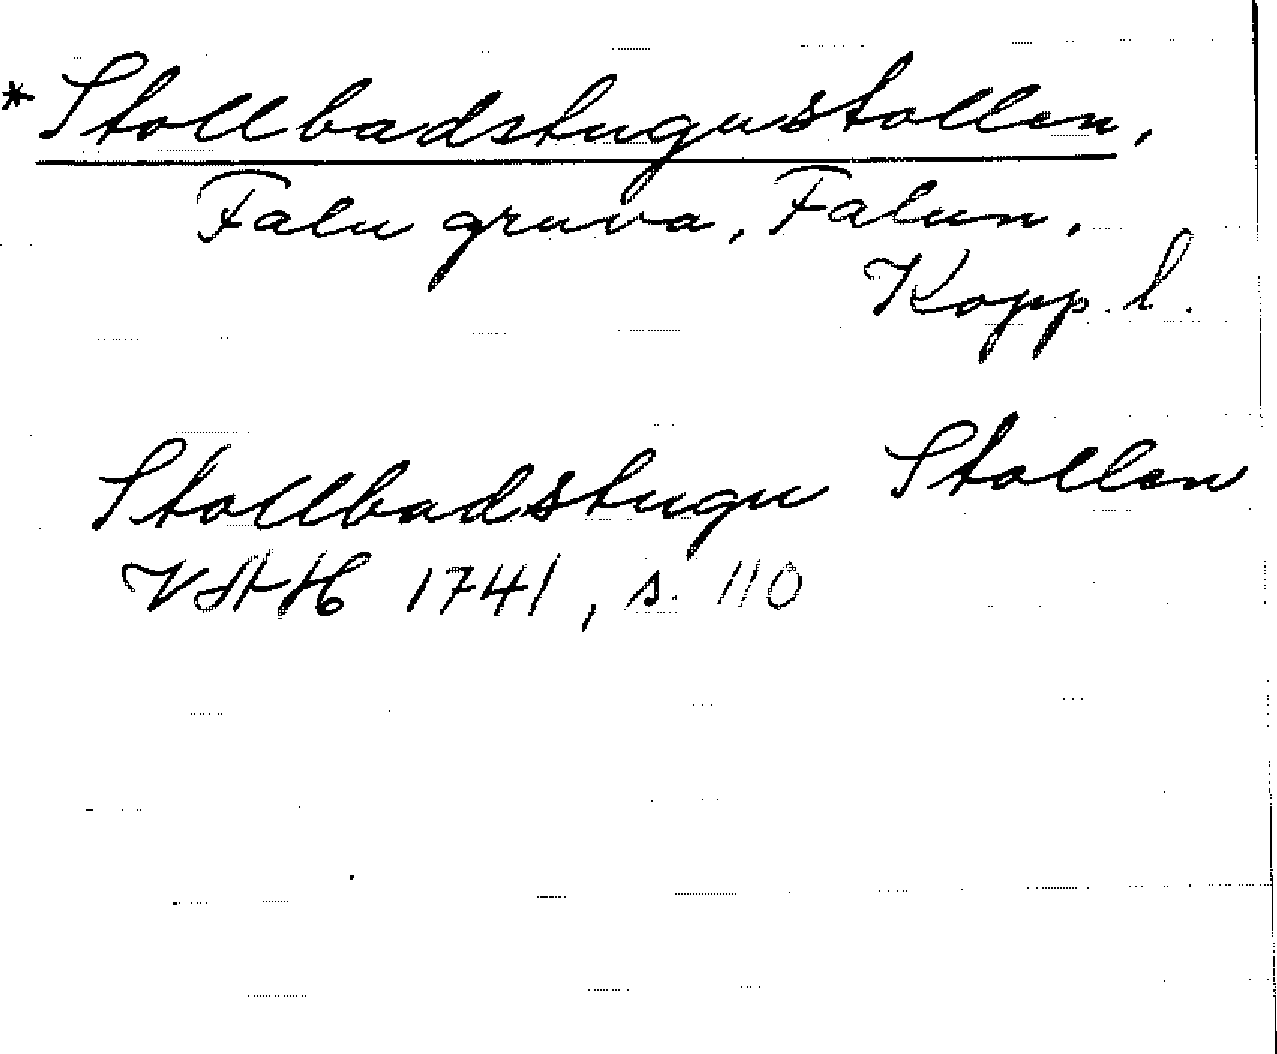 * Stollbadstugustollen,
Falu gruva, Falun,
Kopp. l.
Stollbadstugu Stollen
VAHH 1741, s. 110